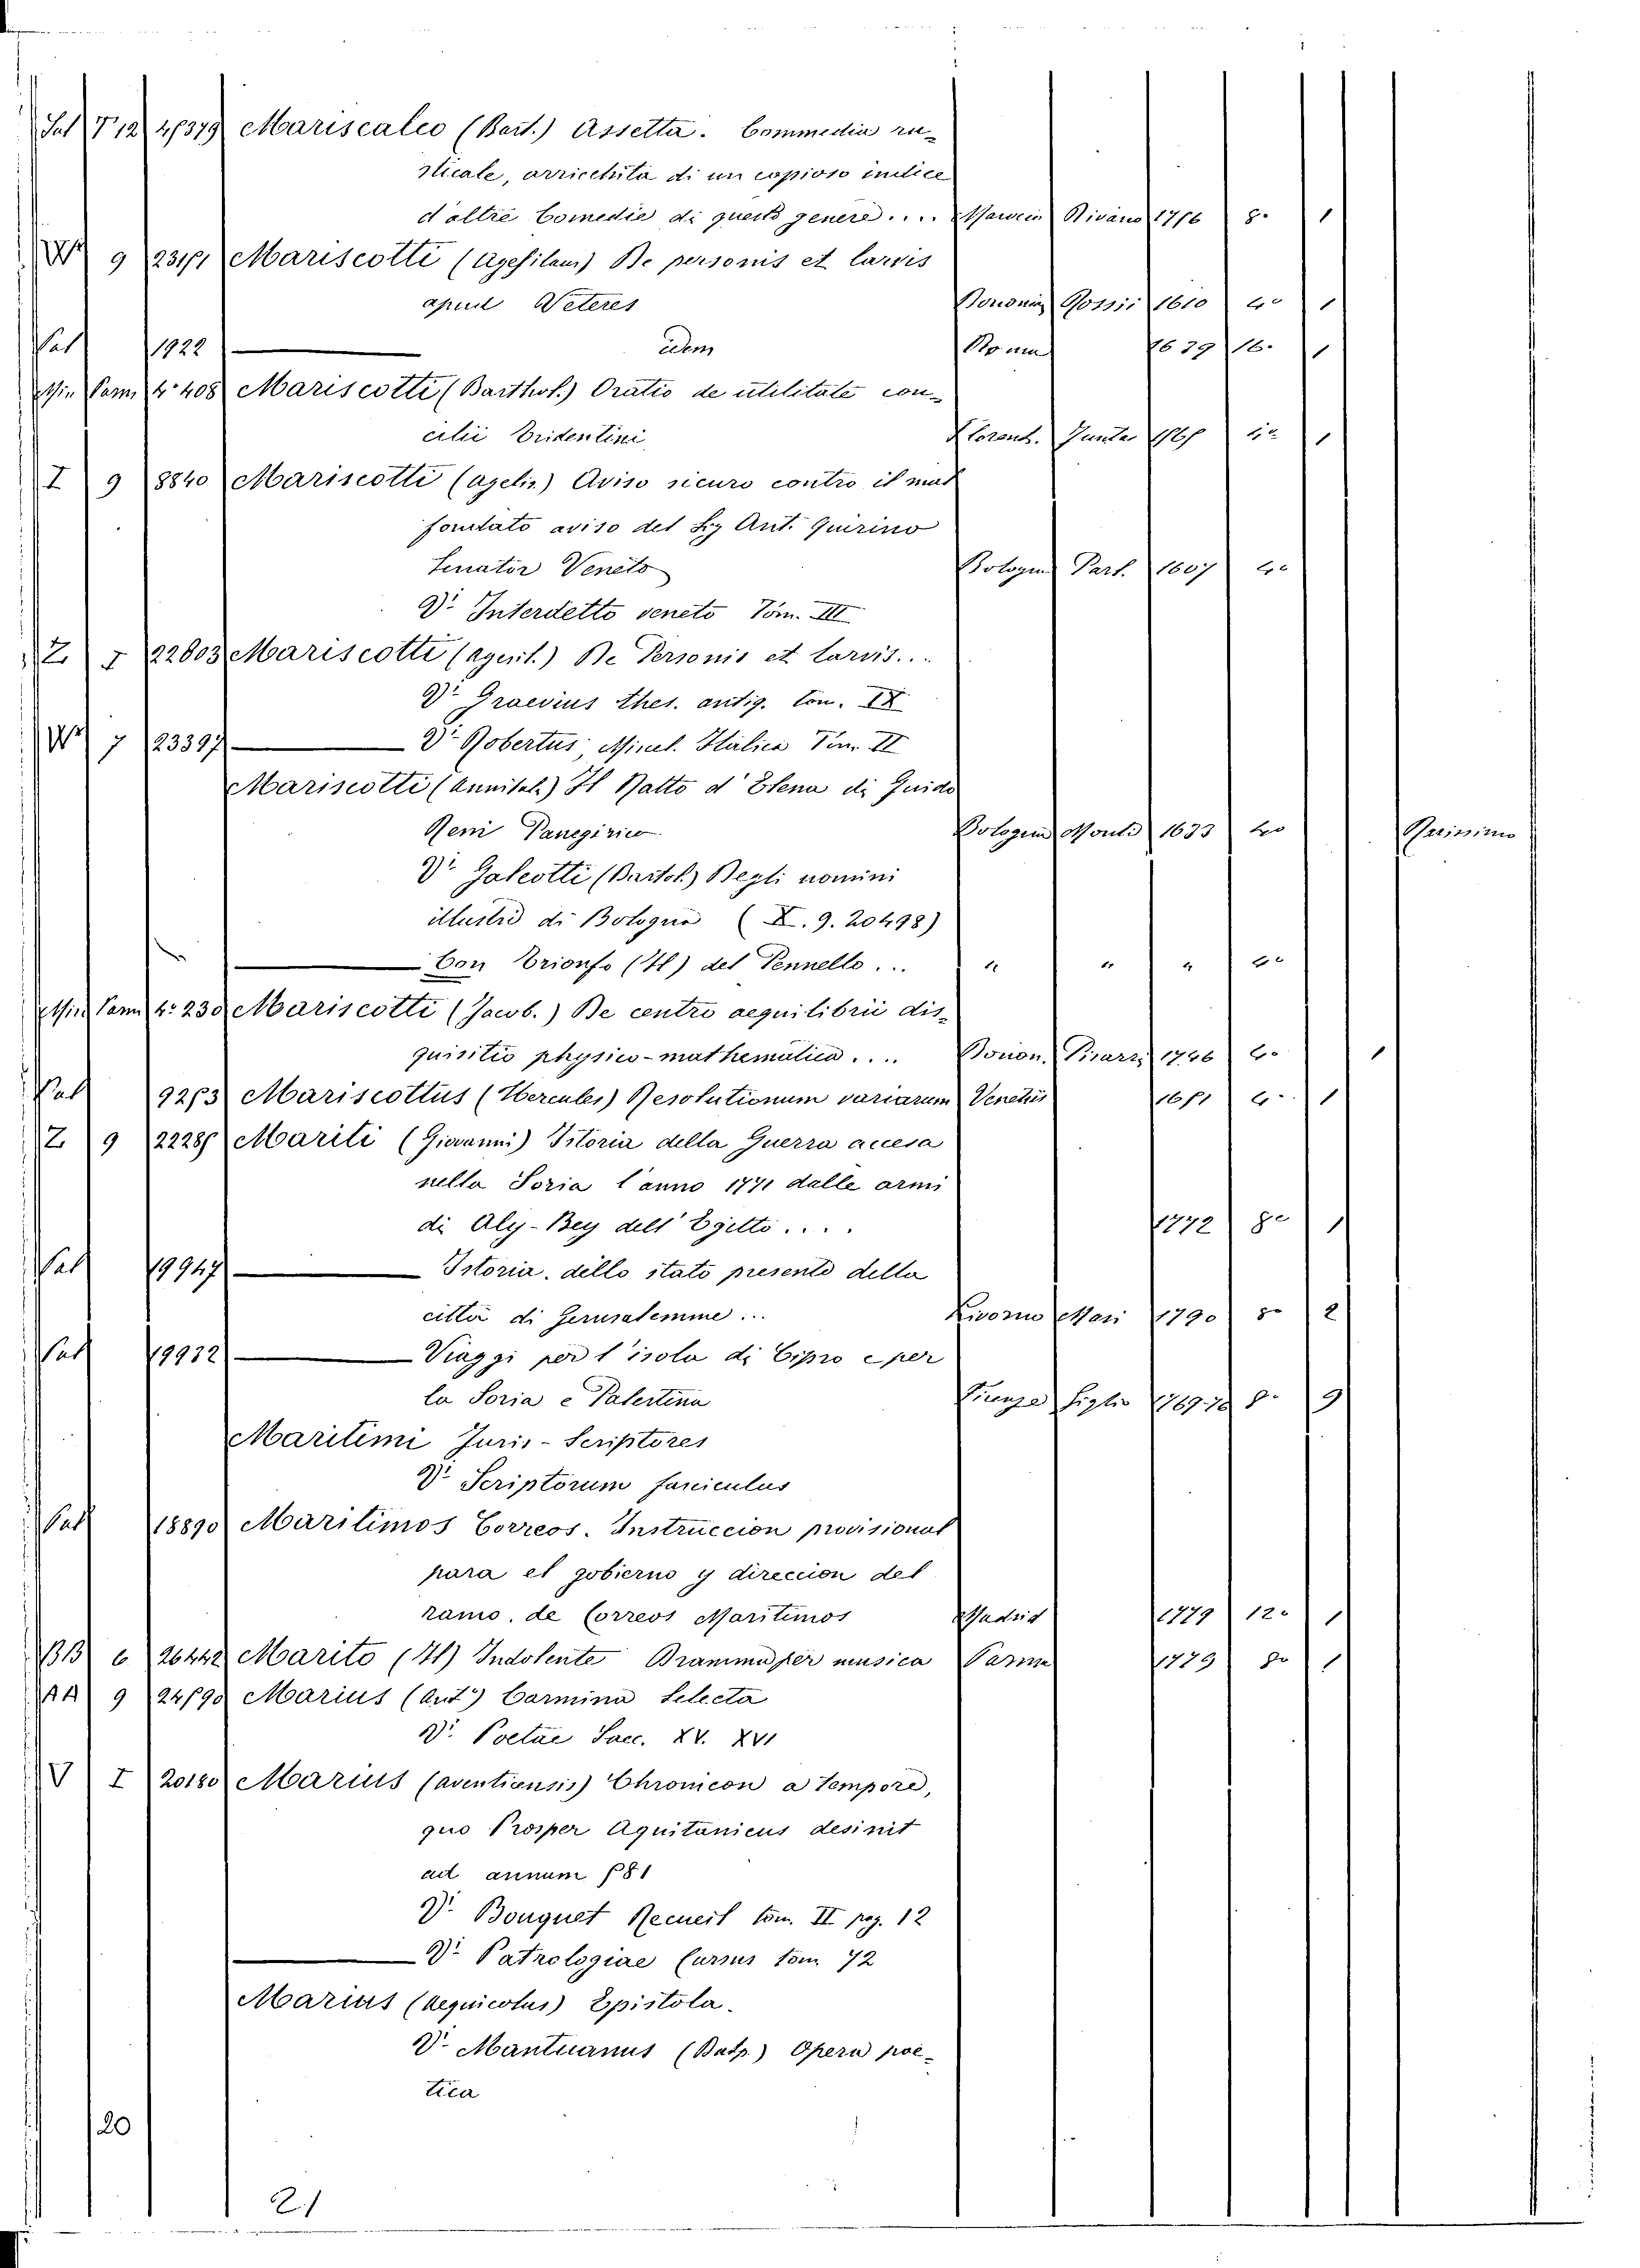 Sal T 12 Mariscalco (Bart.) Assetta. Commedia ru-
sticale, arricchita di un copioso indice
d'altre Comedie di questo genere.... 8°. 1
9 Mariscotti (Agesilaus) De personis et larvis
apud Veteres Bononiae Rossii 1610 4° 1
Pal 1922 — idem Roma 1639 16. 1
Parm 4° 408 Mariscotti (Barthol.) Oratio de utilitate con-
cilii Tridentini Florent. Junta 4° 1
I 9 8840 Mariscotti (Agelis.) Aviso sicuro contro il mal
fondato aviso del Sig Ant. Quirino
Senator Veneto Bologna Part. 1607 4°
V. Interdetto veneto Tom. III
Z I 22603 Mariscotti (Agesil.) De Personis et larvis...
V. Graevius Thes. antiq. tom. IX
7 23397 — V. Robertus, Miscel. Italica Tom. II
Mariscotti (Annibal.) Il Ratto d'Elena di Guido
Reni Panegirico Bologna Monti 1633 4° Rarissimo
V. Galeotti (Bartol.) Degli uomini
illustri di Bologna (X. 9. 20498)
— Con Trionfo (Il) del Pennello... " " " 4°
Parm 4° 230 Mariscotti (Jacob.) De centro aequilibrii dis-
quisitio physico-mathematica.... Bonon. Pisarri 1746 4° 1
Pal Mariscottus (Hercules) Resolutionum variarum Venetiis 4° 1
Z 9 Mariti (Giovanni) Istoria della Guerra accesa
nella Soria l'anno 1771 dalle armi
di Aly-Bey dell'Egitto.... 1772 8° 1
Pal 19947 — Istoria dello stato presente della
città di Gerusalemme... Livorno Masi 1790 8° 2
Pal 19932 — Viaggi per l'isola di Cipro e per
la Soria e Palestina Firenze 8° 9
Maritimi Juris-Scriptores
V. Scriptorum fasciculus
Pal 18890 Maritimos Correos. Instruccion provisional
para el gobierno y direccion del
ramo de Correos Maritimos Madrid 1779 12° 1
BB 6 26442 Marito (Il) Indolente Dramma per musica Parma 1779 8° 1
AA 9 Marius (Ant.) Carmina Selecta
V. Poetae Saec. XV. XVI
V I 20180 Marius (Aventicensis) Chronicon a tempore,
quo Prosper Aquitanicus desinit
ad annum 581
V. Bouquet Recueil tom. II pag. 12
— V. Patrologiae Cursus tom 72
Marius (Aequicolus) Epistola.
V. Mantuanus (Bap.) Opera poe-
tica
20
21